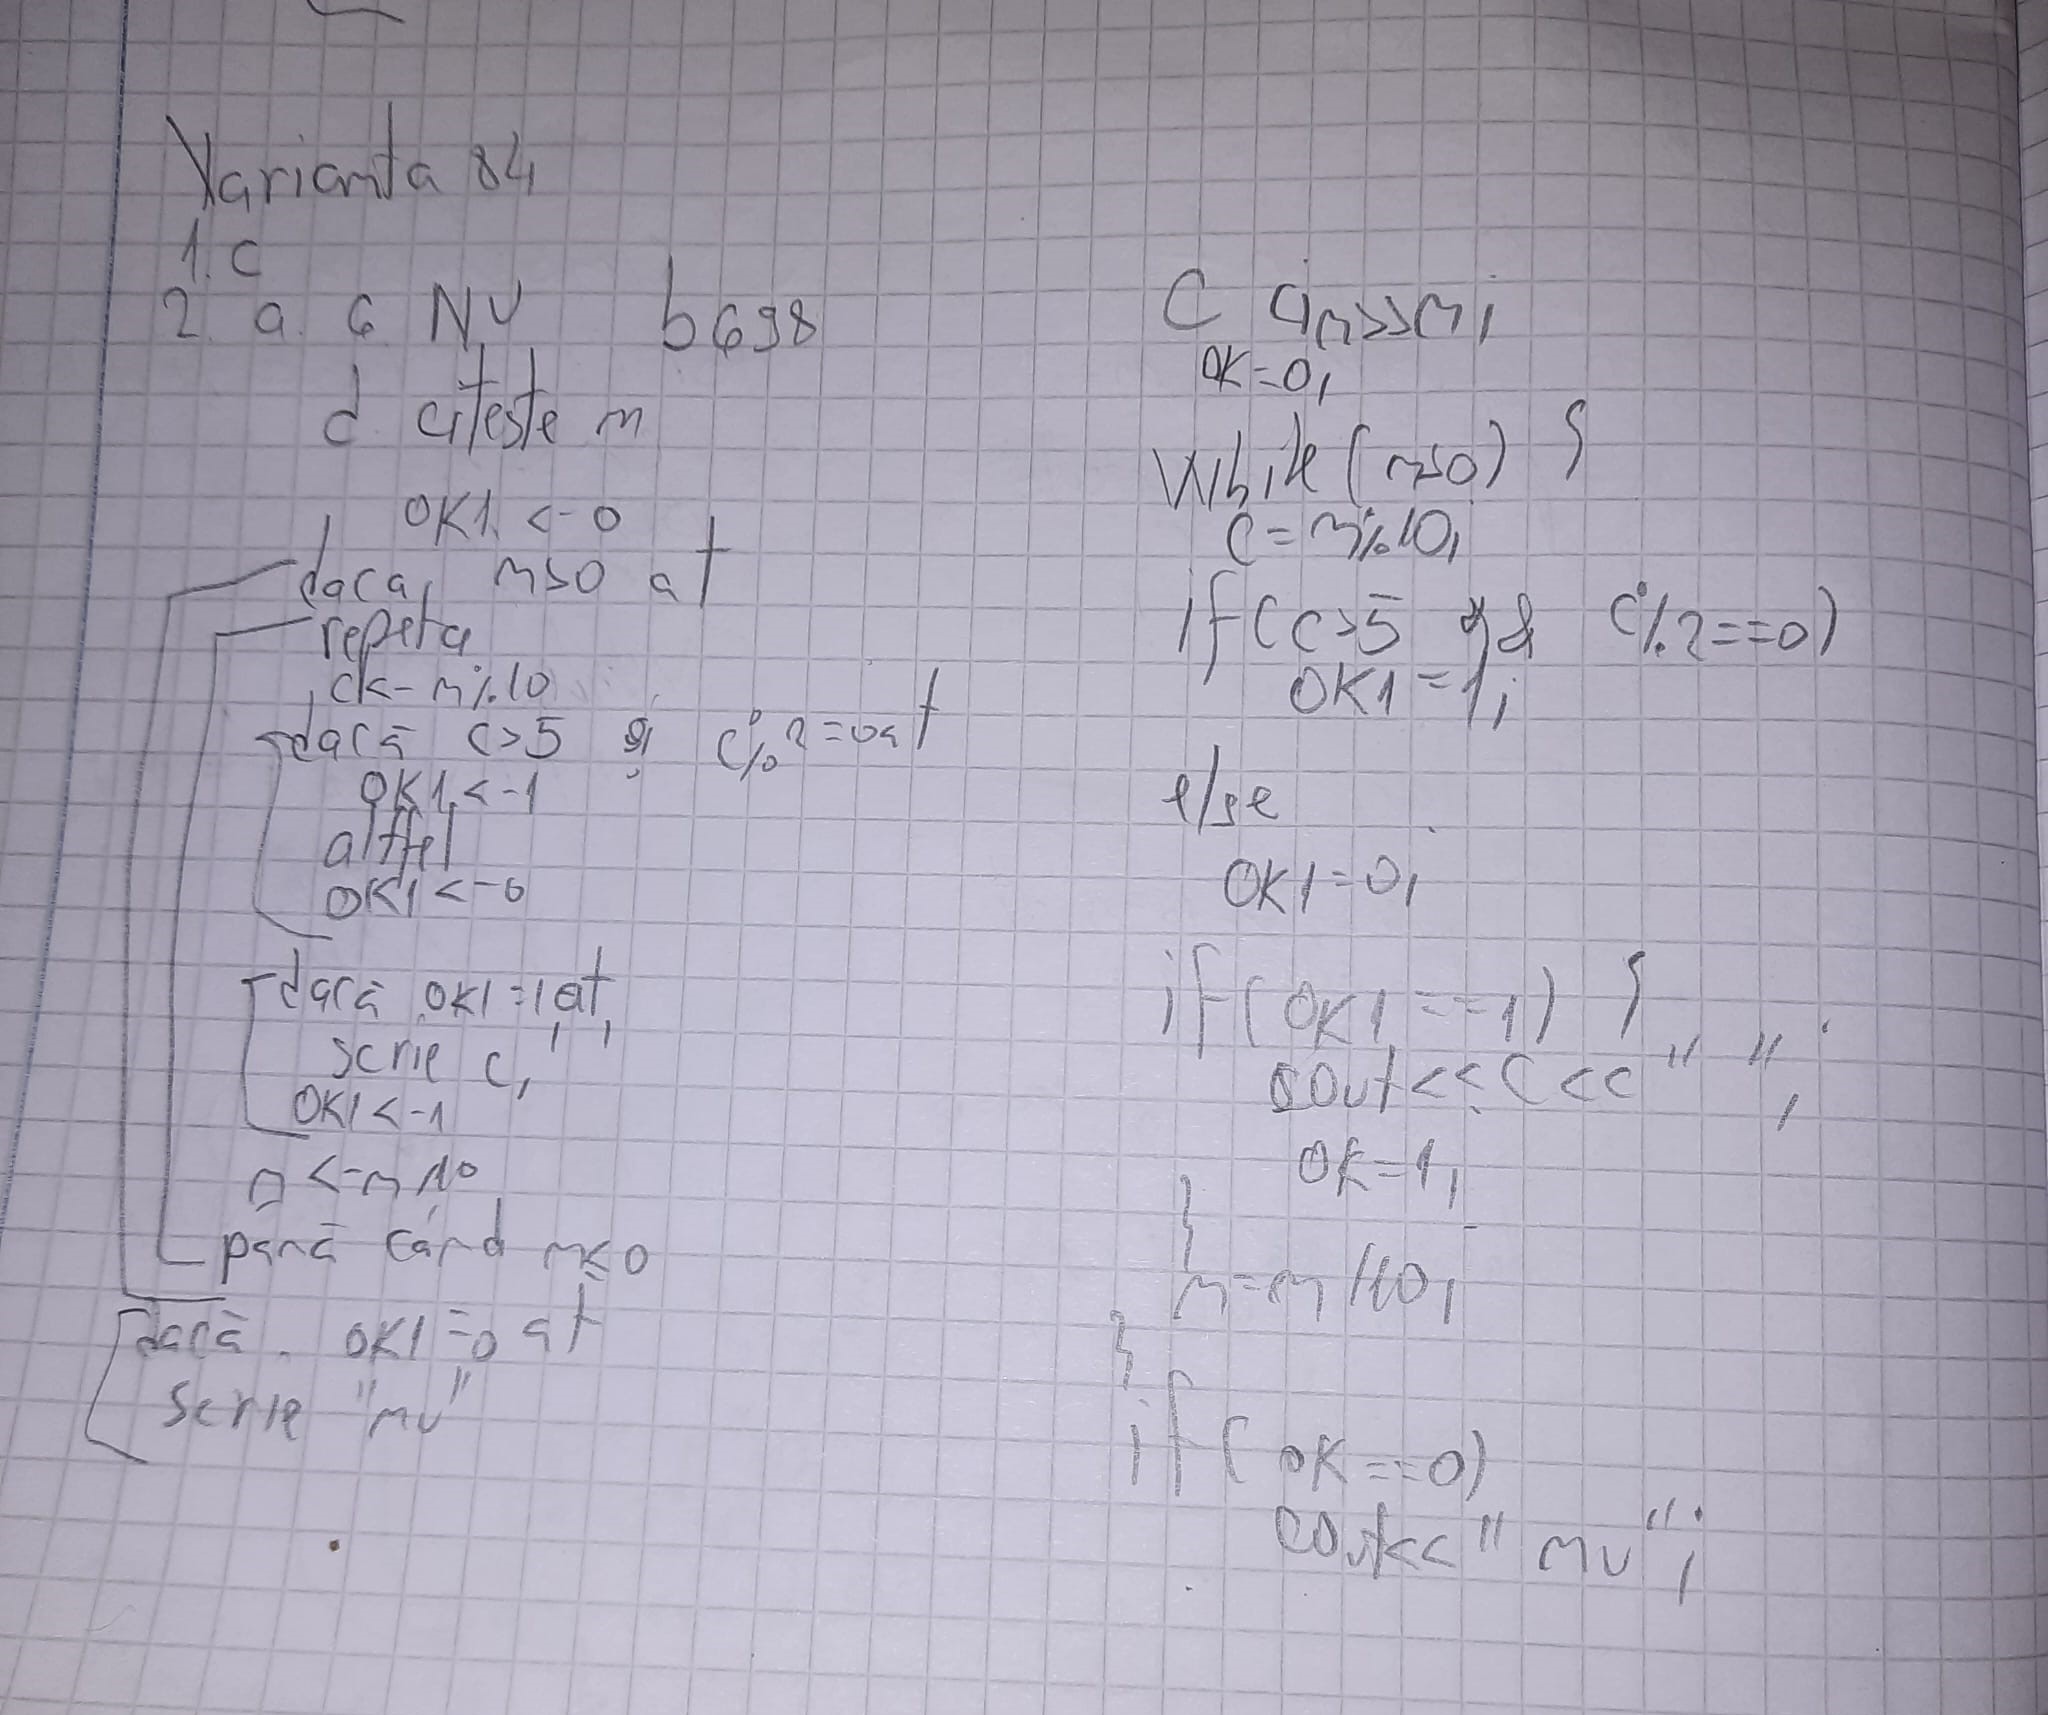 Varianta 84
1. C
2. a. 6 NU b 698
d citeste n
OK1 <- 0
daca n>0 at
repeta
c<- n%10
dacă c>5 și c%2=0 at
OK1 <-1
altfel
OK1 <-0
dacă OK1=1 at
scrie c, ' '
OK1 <-1
n <- n/10
până când n≤0
dacă OK1=0 at
scrie "nu"
C cin>>n;
OK=0;
While (n>0) {
c=n%10;
if (c>5 && c%2==0)
OK1=1;
else
OK1=0;
if (OK1==1) {
cout<<c<<" ";
OK=1;
}
n=n/10;
}
if (OK==0)
cout<<"nu";